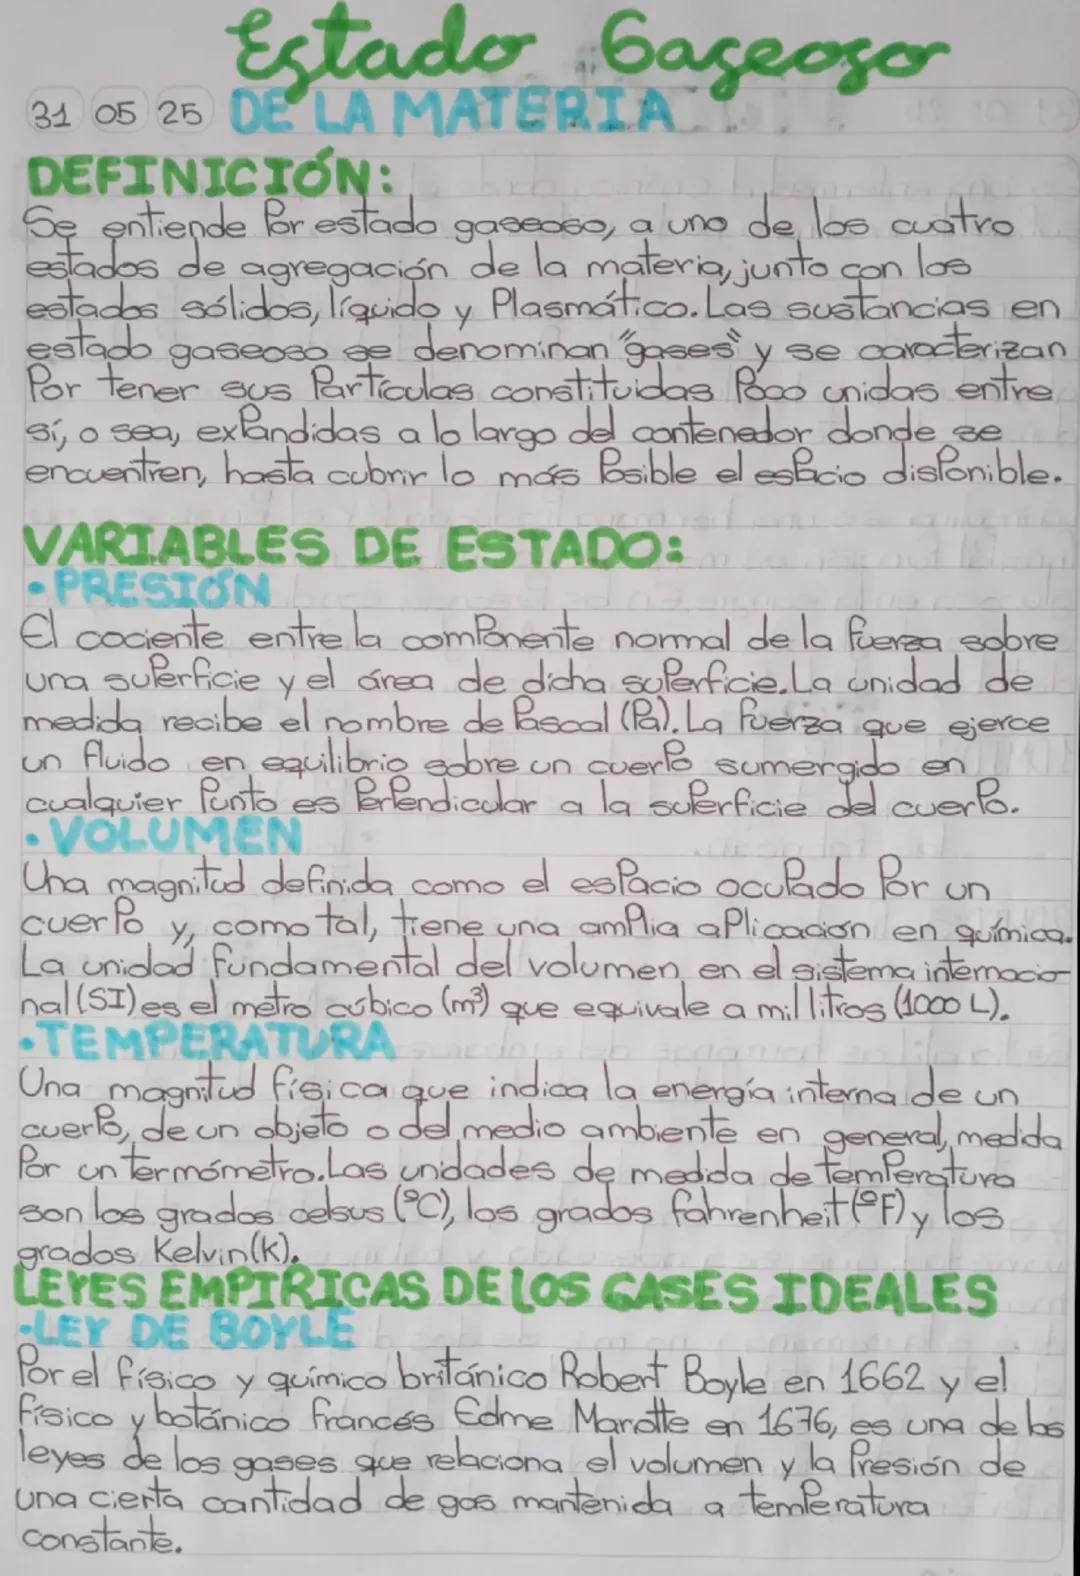 Estado Gaseoso
31 05 25 DE LA MATERIA
DEFINICIÓN:
Se entiende Por estado gaseoso, a uno de los cuatro
estados de agregación de la materia, junto con los
estados sólidos, líquido y Plasmático. Las sustancias en
estado gaseoso se denominan "gases" y se caracterizan
Por tener sus Partículas constituidas Poco unidas entre
sí, o sea, exPandidas a lo largo del contenedor donde se
encuentren, hasta cubrir lo más Posible el esPacio disPonible.
VARIABLES DE ESTADO:
• PRESIÓN
El cociente entre la comPonente normal de la fuerza sobre
una suPerficie y el área de dicha suPerficie. La unidad de
medida recibe el nombre de Pascal (Pa). La fuerza que ejerce
un fluido en equilibrio sobre un cuerPo sumergido en
cualquier Punto es PerPendicular a la suPerficie del cuerPo.
• VOLUMEN
Una magnitud definida como el esPacio ocuPado Por un
cuerPo y, como tal, tiene una amPlia aPlicación en química.
La unidad fundamental del volumen en el sistema internacio-
nal (SI) es el metro cúbico (m³) que equivale a mil litros (1000 L).
• TEMPERATURA
Una magnitud física que indica la energía interna de un
cuerPo, de un objeto o del medio ambiente en general, medida
Por un termómetro. Las unidades de medida de temPeratura
son los grados celsus (°C), los grados fahrenheit (°F) y los
grados Kelvin (K).
LEYES EMPIRICAS DE LOS GASES IDEALES
-LEY DE BOYLE
Por el físico y químico británico Robert Boyle en 1662 y el
físico y botánico francés Edme Mariotte en 1676, es una de las
leyes de los gases que relaciona el volumen y la Presión de
una cierta cantidad de gas mantenida a temPeratura
constante.